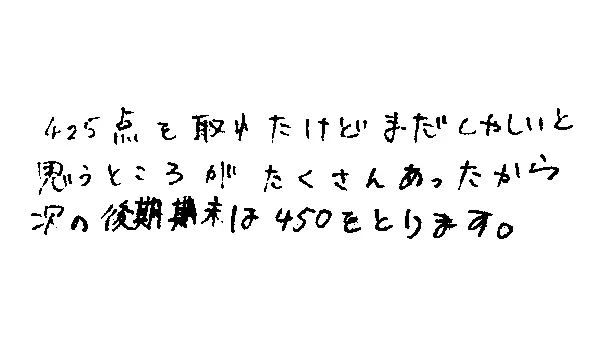 425点を取れたけどまだくやしいと
思うところがたくさんあったから
次の後期期末は450をとります。